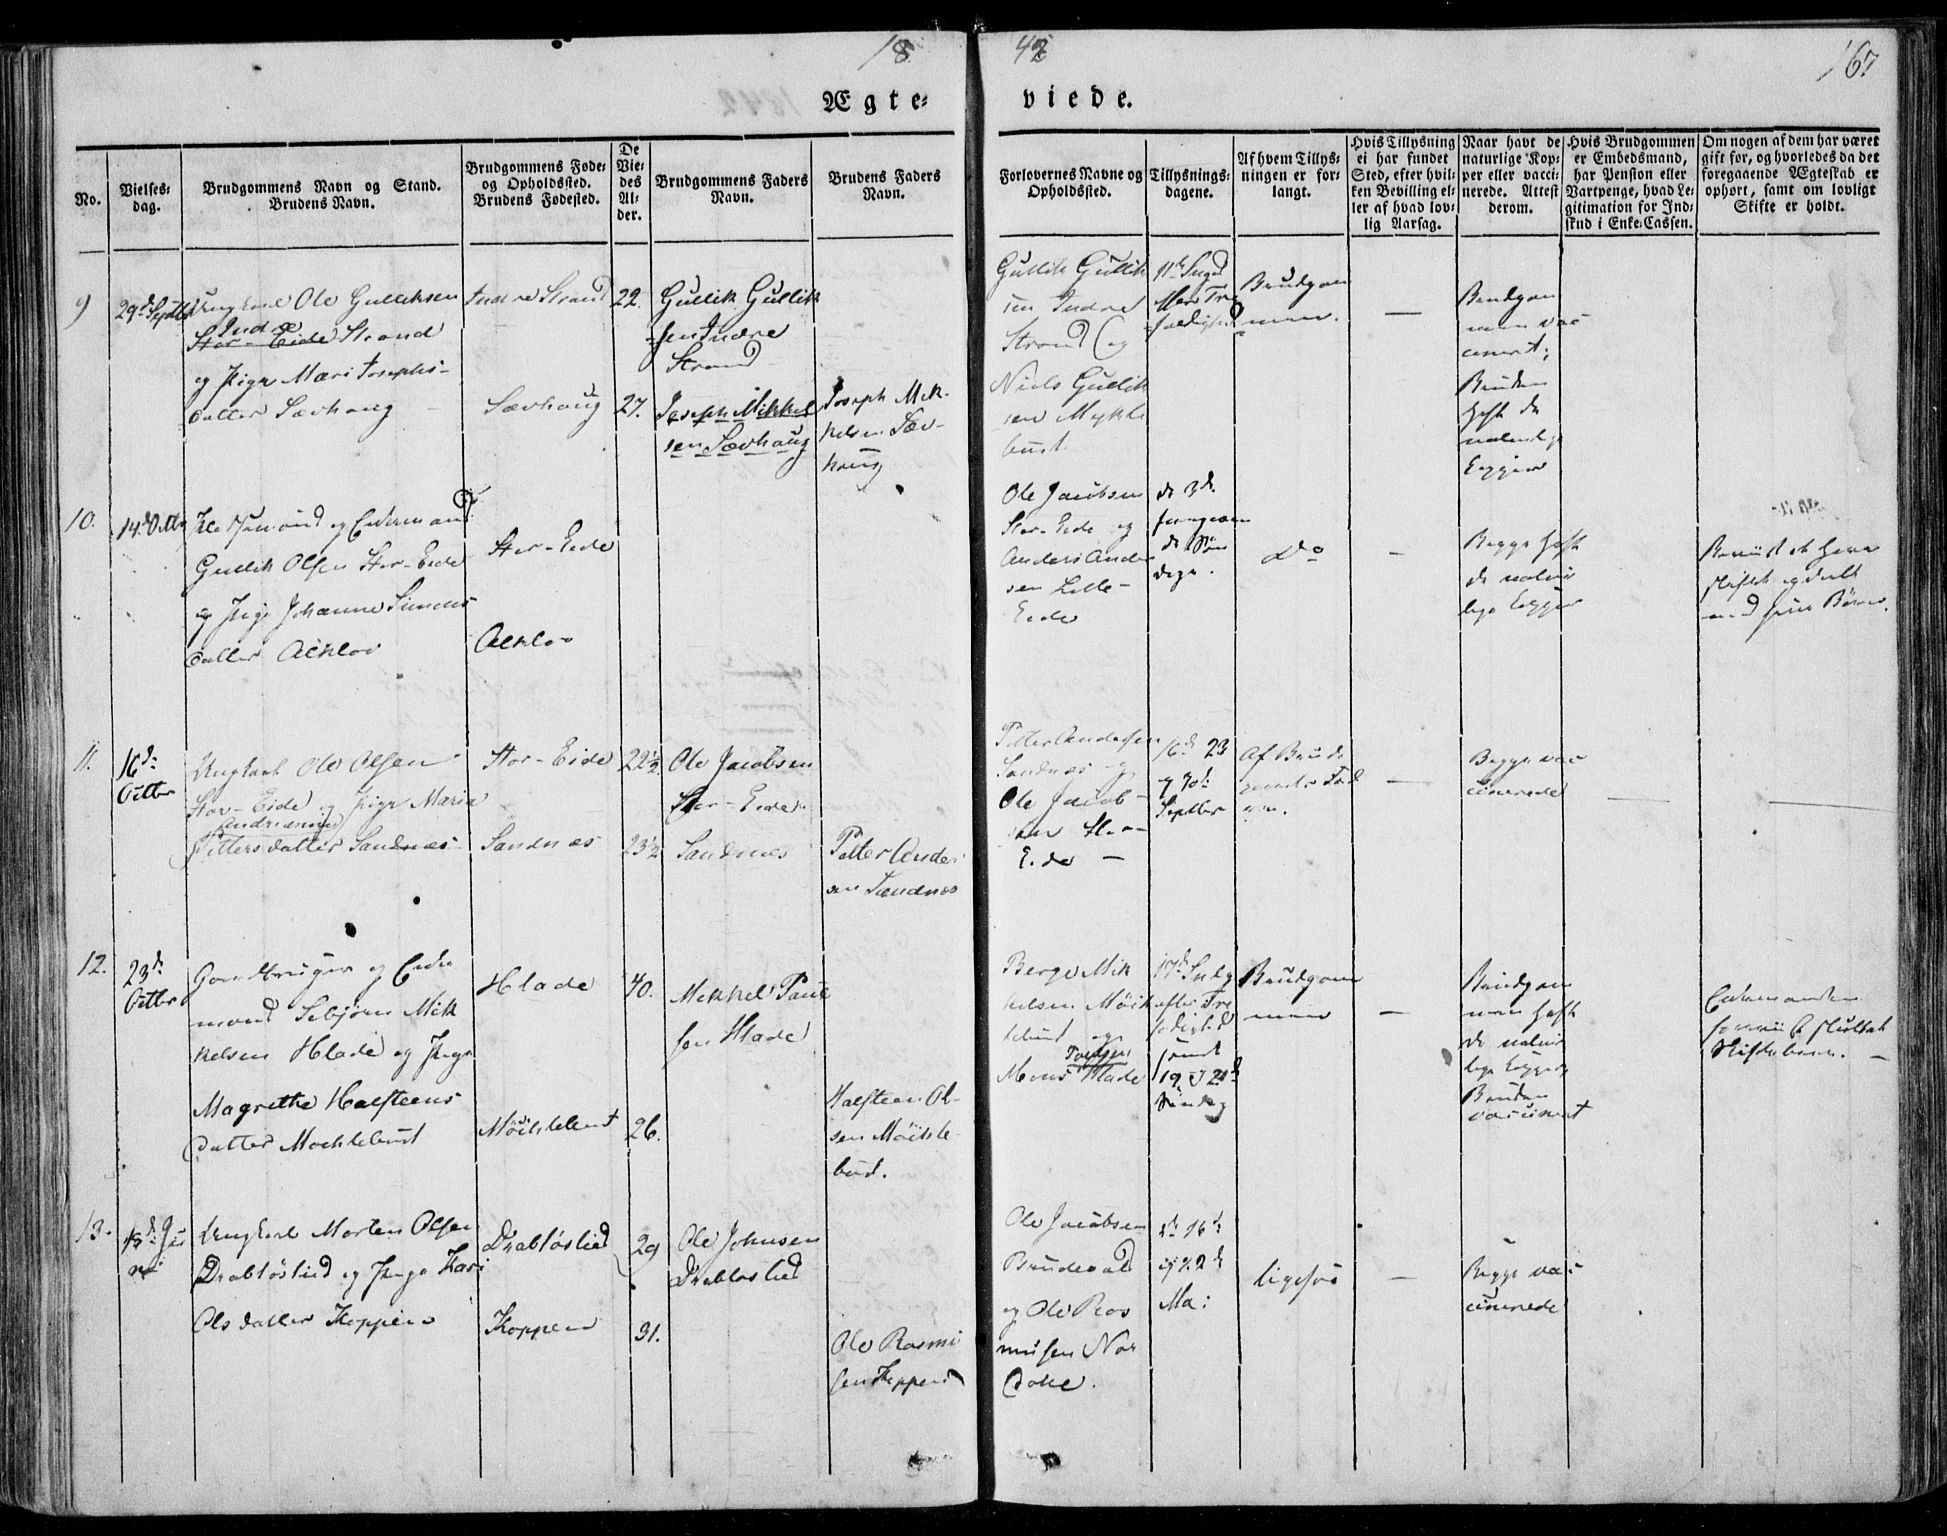 18
42
167
Ægte-
viede.
No.
Vielses-
dag.
Brudgommens Navn og Stand.
Brudens Navn.
Brudgommens Føde-
og Opholdssted.
Brudens Fødested.
De
Vie-
des
Al-
der.
Brudgommens Faders
Navn.
Brudens Faders
Navn.
Forlovernes Navne og
Opholdssted.
Tillysnings-
dagene.
Af hvem Tillys-
ningen er for-
langt.
Hvis Tillysning
ei har fundet
Sted, efter hvil-
ken Bevilling el-
ler af hvad lov-
lig Aarsag.
Naar havt de
naturlige Kop-
per eller vacci-
nerede. Attest
derom.
Hvis Brudgommen
er Embedsmand,
har Pension eller
Vartpenge, hvad Le-
gitimation for Ind-
skud i Enke-Cassen.
Om nogen af dem har været
gift før, og hvorledes da det
foregaaende Ægteskab er
ophørt, samt om lovligt
Skifte er holdt.
9
29d Septbr
Ungkarl Ole Gulliksen
Indre
Stor-Eide Strand
og Pige Mari Josephs-
datter Sævhaug
Indre Strand
Sævhaug
22.
27.
Gullik Gullik
sen Indre
Strand
Joseph Mikkel
sen Sævhaug
Joseph Mik-
kelsen Sæv-
haug
Gullik Gullik
sen Indre
Strand og
Niels Gullik
sen Mykle
bust.
Brudgom
men.
—
Brudgom
men vac
cinert;
Bruden
haft de
naturlige
Kopper
10.
14d Octbr
og Enkemand
Gullik Olsen Stor-Eide
og Pige Johanne Simons
datter Acklov
Stor-Eide
Acklov
Ole Jacobsen
Stor-Eide og
Anders Ander
sen Lille-
Eide
de 3de
foregaaen
de Søn
dage.
Do
—
Begge haft
de natur
lige Kopper
skiftet og delt
med sine Børn.
11.
16d
Octbr
Ungkarl Ole Olsen
Stor-Eide og Pige Maria
Pettersdatter Sandnæs
Stor-Eide
Sandnæs
22½
23½
Ole Jacobsen
Stor-Eide
Sandnæs
Petter Ander
sen Sandnæs
Petter Andersen
Sandnæs og
Ole Jacob-
sen Stor-
Eide —
16d 23
og 30d
Septbr
Af Brude
—
Begge vac
cinerede
12.
23d
Octbr
Gaardbruger og Enke
mand Sebjørn Mik
kelsen Hlade og Pige
Magrethe Halsteens
datter Möcklebust
Hlade
Möcklebust
40.
26.
Mikkel Paul
sen Hlade
Halsteen Ol-
sen Möckle-
bust.
Berge Mik
kelsen Möck
lebust og
Mons Hlade
17d
efter Tre
foldighed
samt
19 & 20d
Søndag
Brudgom
men
—
Brudgom
men haft
de natur
lige Kopper
Bruden
vaccinert
Enkemanden
13.
15d Ju
ni
Ungkarl Morten Olsen
Drabløslied og Pige Kari
Olsdatter Koppen
Drabløslied
Koppen
29
31.
Ole Johnsen
Drabløslied
Ole Rasmu
sen Koppen
Ole Jacobsen
Brudevold
og Ole Ras
musen Nor
dahl.
Mai
ligesaa
—
Begge vac
cinerede